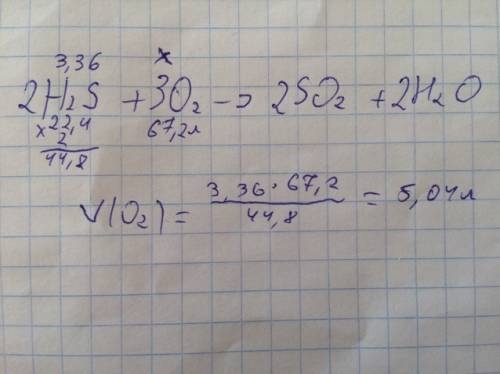 3,36 x
2H₂S + 3O₂ -> 2SO₂ + 2H₂O
x22,4 67,2л
2
44,8
V(O₂) = 3,36·67,2 / 44,8 = 5,04л